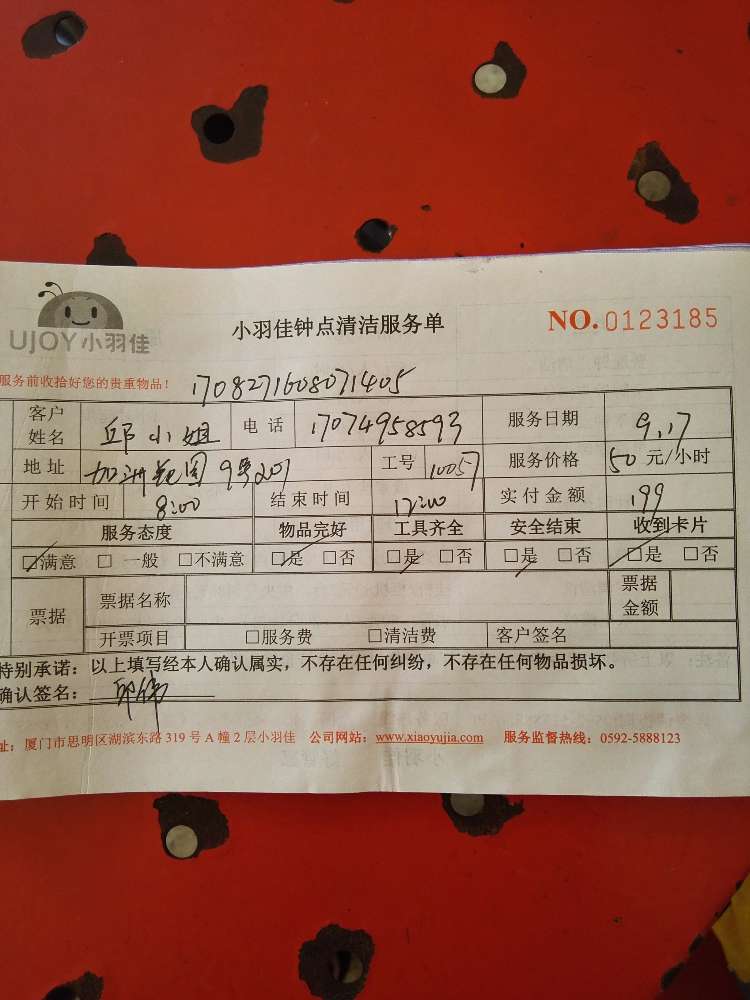 UJOY小羽佳
小羽佳钟点清洁服务单
NO.0123185
服务前收拾好您的贵重物品！
1708271608071405
客户姓名 邱小姐 电话 17074958593 服务日期 9.17
地址 加洲花园9号207 工号 10057 服务价格 50元/小时
开始时间 8:00 结束时间 12:00 实付金额 199
服务态度 物品完好 工具齐全 安全结束 收到卡片
☑满意 □一般 □不满意 ☑是 □否 ☑是 □否 ☑是 □否 ☑是 □否
票据 票据名称 票据金额
开票项目 □服务费 □清洁费 客户签名
特别承诺：以上填写经本人确认属实，不存在任何纠纷，不存在任何物品损坏。
确认签名：
址：厦门市思明区湖滨东路319号A幢2层小羽佳 公司网站：www.xiaoyujia.com 服务监督热线：0592-5888123